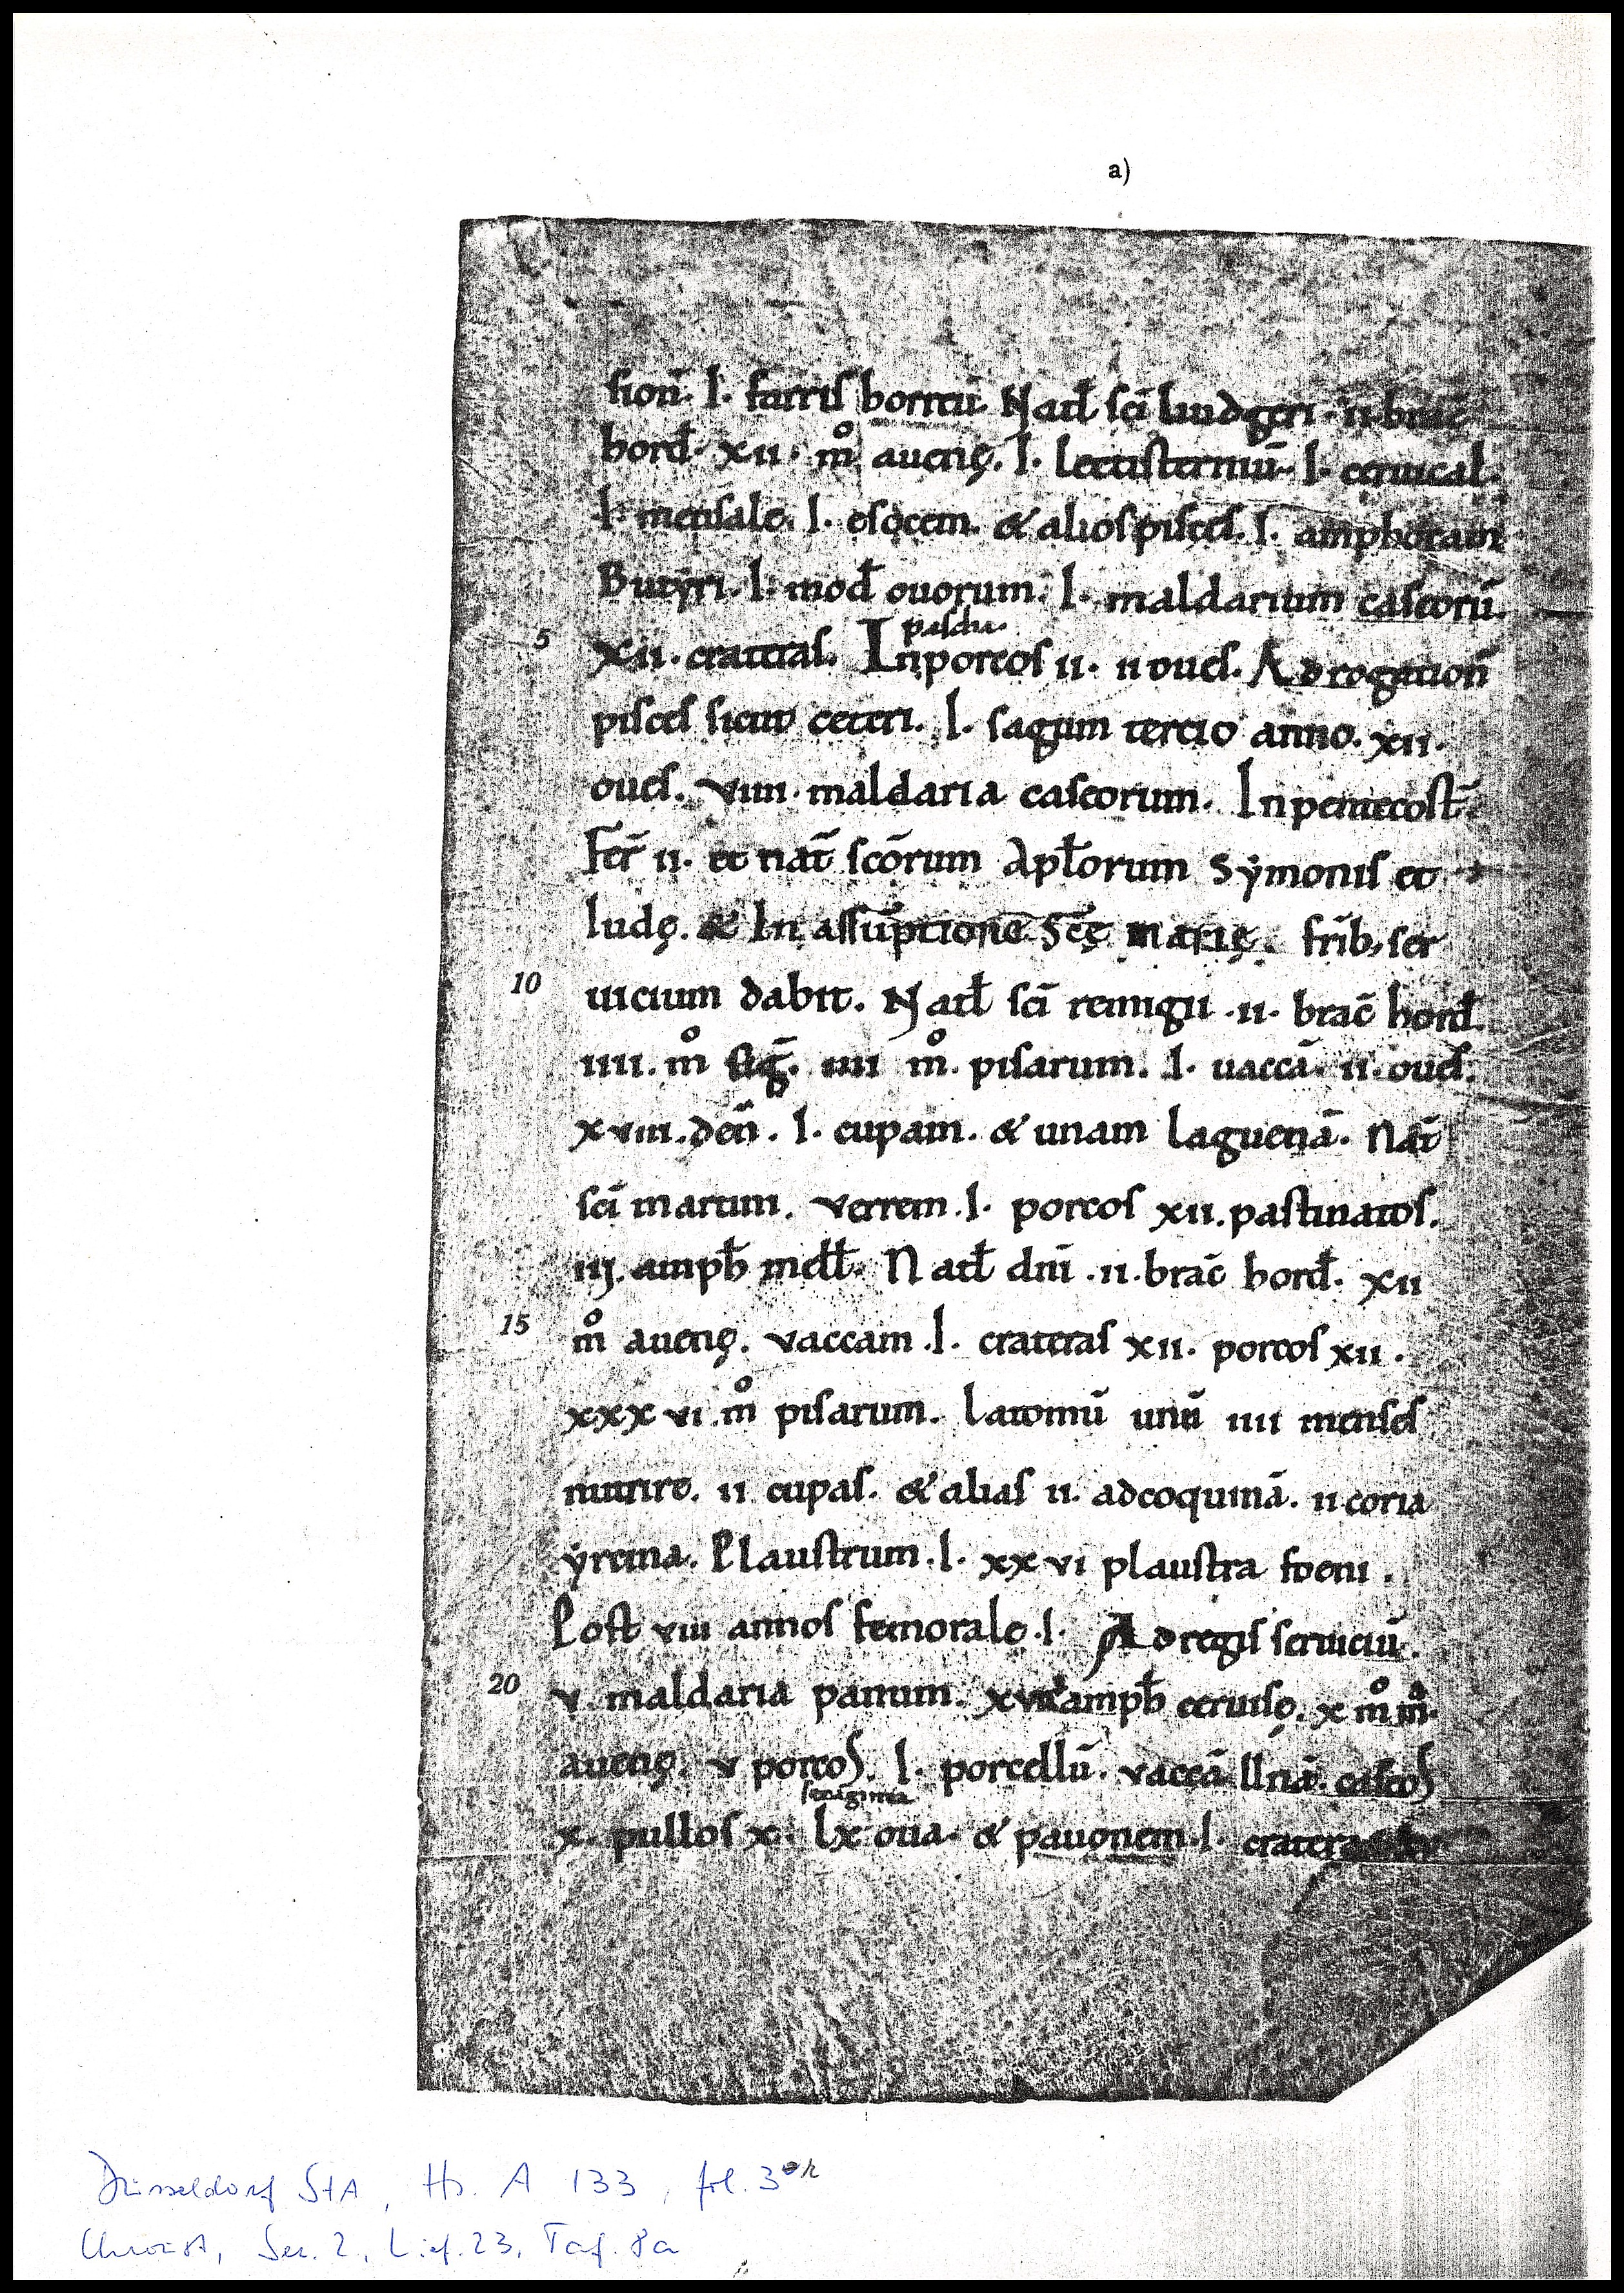 a)
sion̄. I. farris horreū. Natł sc̄i liudgeri · ii · brac̄
hord̄. xii. m̊ auenę. I. Lectisterniū. I. ceruical.
I. mensale. I. esocem. & alios pisces. I. amphoram
Butẏri. I. mod̄ ouorum. I. maldarium caseorū.
pascha.
5 Xii. crateras. In porcos ii. ii oues. Ad rogation̄
pisces sicut ceteri. I. sagum tercio anno. xii.
oues. viiii. maldaria caseorum. In pentecost̄.
Fer̄ ii. et nat̄ sc̄orum Apl̄orum Sẏmonis et
Iudę. & In assūptione Sc̄ę marię. fr̄ib; ser
10 uicium dabit. Natł sc̄i remigii · ii · brac̄ hord̄.
iiii. m̊ siḡ. iiii m̊. pisarum. I. uaccā. ii. oues.
xviii. den̄. I. cupam. & unam laguenā. Nat̄
sc̄i martini. verrem .I. porcos xii. pastinatos.
iij. amph̄ mell̄. Natł dn̄i · ii · brac̄ hord̄. xii
15 m̊ auenę. vaccam .I. crateras xii. porcos xii.
xxxvi. m̊ pisarum. Latomū unū iiii menses
nutrire. ii cupas. & alias ii. ad coquinā. ii coria
ẏrcina. Plaustrum .I. xxvi plaustra foeni.
Post viii annos femorale .I. Ad regis seruiciū.
20 v. maldaria panum. amph̄ ceruisę. x m̊ m̊.
auenę. v porcos. I. porcellū. vaccā. caseos
sexaginta
x. pullos x. Lx oua. & pauonem .I.
Düsseldorf StA, Hs. A 133, fol. 3 r
Chroust, Ser. 2, Lief. 23, Taf. 8a